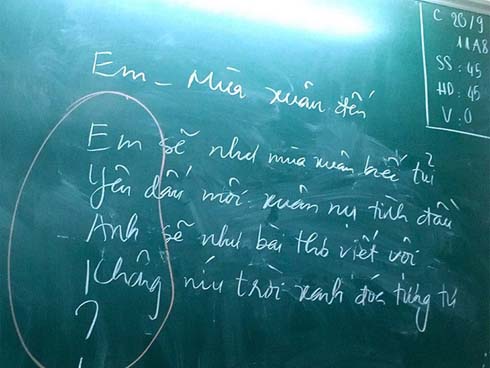 C 20/9
11A8
SS : 45
HD : 45
V : 0
Em - Mùa xuân đến
Em sẽ như mùa xuân biết tủi
Yên dấu môi xuân nụ tình đầu
Anh sẽ như bài thơ viết vội
Không níu trời xanh đoá
?